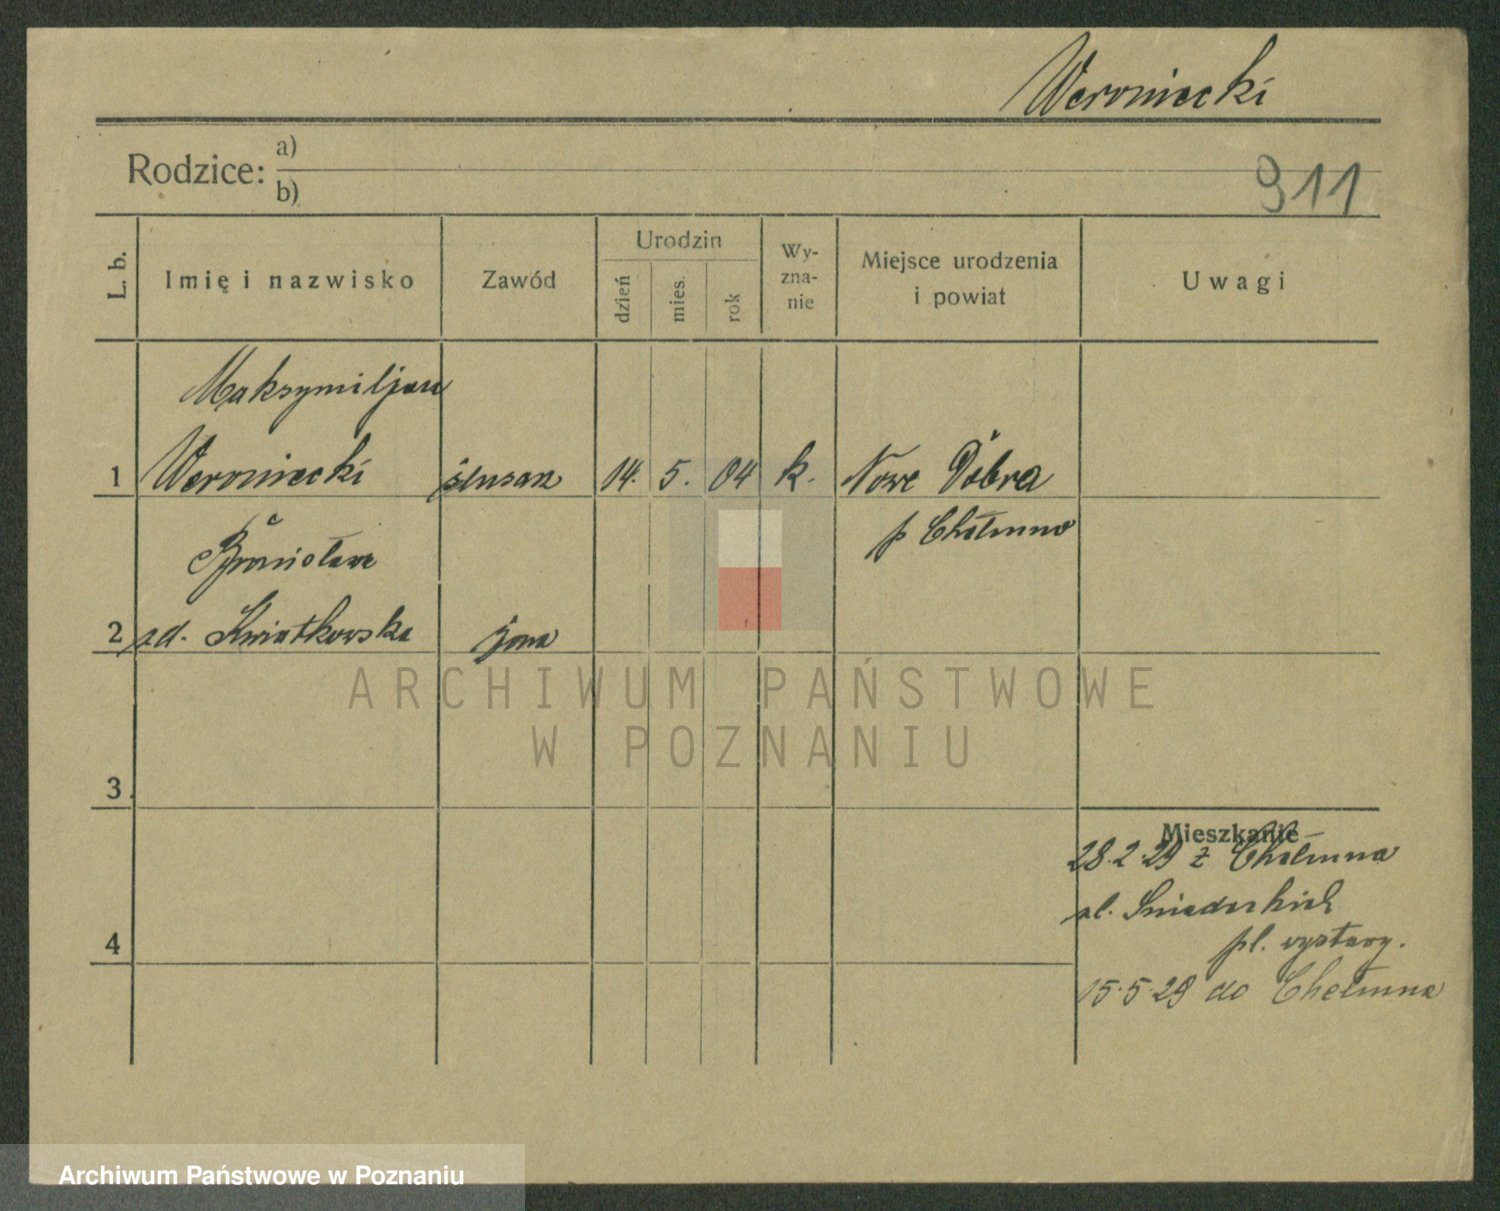 Weroniecki
Rodzice: a)
b)
911
L. b.
Imię i nazwisko
Zawód
Urodzin
dzień
mies.
rok
Wy-
zna-
nie
Miejsce urodzenia
i powiat
Uwagi
Maksymiljan
1 Weroniecki ślusarz 14. 5. 04 k. Nowe Dobra
p Chełmno
Bronisława
2 zd. Kwiatkowska żona
3
4
Mieszkanie
28.2.29 z Chełmna
ul. Śniadeckich
pl. wystawy.
15.5.29 do Chełmna
ARCHIWUM PAŃSTWOWE
W POZNANIU
Archiwum Państwowe w Poznaniu